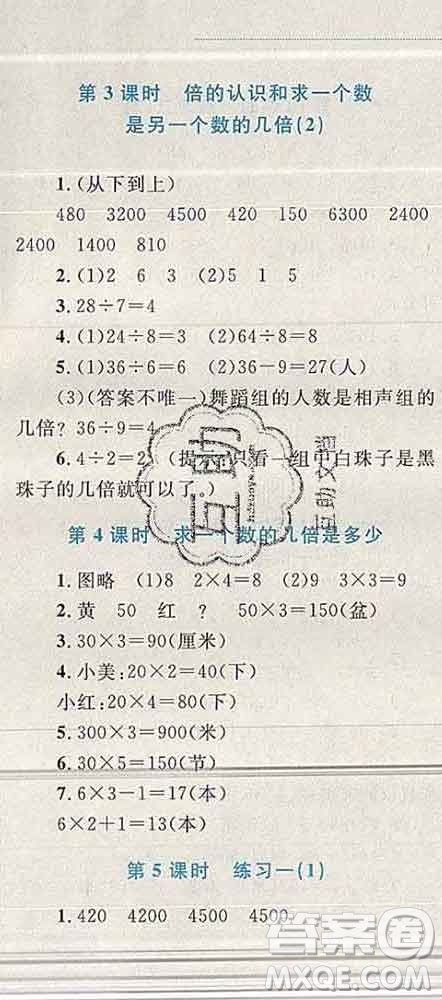 第3课时 倍的认识和求一个数
是另一个数的几倍(2)
1.(从下到上)
480 3200 4500 420 150 6300 2400
2400 1400 810
2.(1)2 6 3 (2)5 1 5
3.28÷7=4
4.(1)24÷8=3 (2)24÷4=6
5.(1)36÷6=6 (2)36-9=27(人)
(3)(答案不唯一)舞蹈组的人数是相声组的
几倍?36÷9=4
6.4÷2=2 (提 只看一组中白珠子是黑
珠子的几倍就可以了。)
互助
互助文档
第4课时 求一个数的几倍是多少
1.图略 (1)8 2×4=8 (2)9 3×3=9
2.黄 50 红 ? 50×3=150(盆)
3.30×3=90(厘米)
4.小美:20×2=40(下)
小红:20×4=80(下)
5.300×3=900(米)
6.30×5=150(节)
7.6×3-1=17(本)
6×2+1=13(本)
第5课时 练习一(1)
1.420 4200 4500 4500
答案圈
MXQE.COM